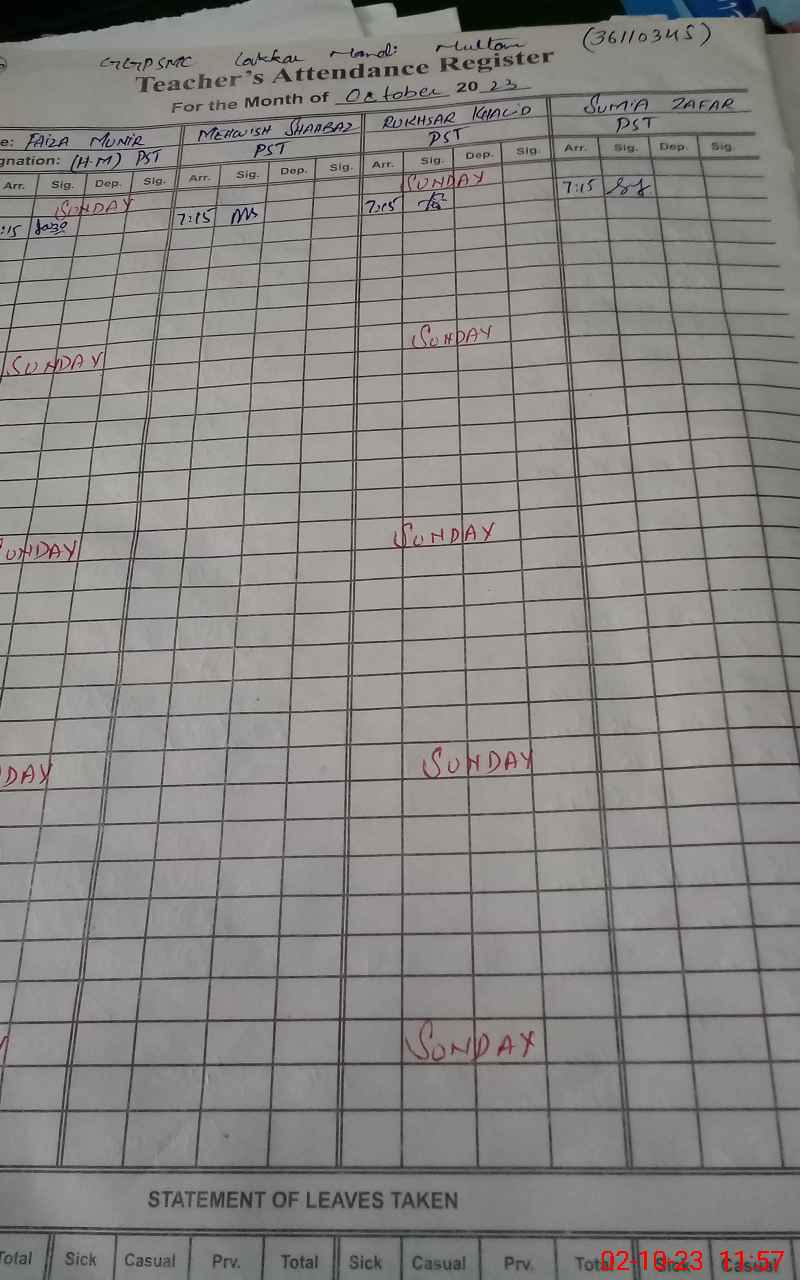 GGPSMC Lakkar Mandi Multan (36110345)
Teacher's Attendance Register
For the Month of October 2023
e: FAIZA MUNIR MEHWISH SHAHBAZ RUKHSAR KHALID SUMIA ZAFAR
gnation: (H.M) PST PST PST PST
Arr. Sig. Dep. Sig. Arr. Sig. Dep. Sig. Arr. Sig. Dep. Sig. Arr. Sig. Dep. Sig.
SUNDAY SUNDAY
:15 7:15 7:15 7:15
SUNDAY SUNDAY
SUNDAY SUNDAY
DAY SUNDAY
SUNDAY
STATEMENT OF LEAVES TAKEN
Total Sick Casual Prv. Total Sick Casual Prv. Total Sick Casual
02-10-23 11:57